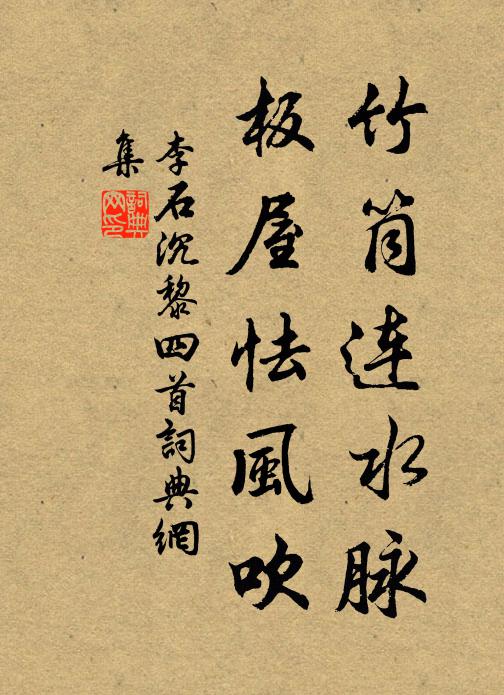 竹筒連水脉
板屋怯風吹
李石沉黎四首詞典網
集
詞典
网印